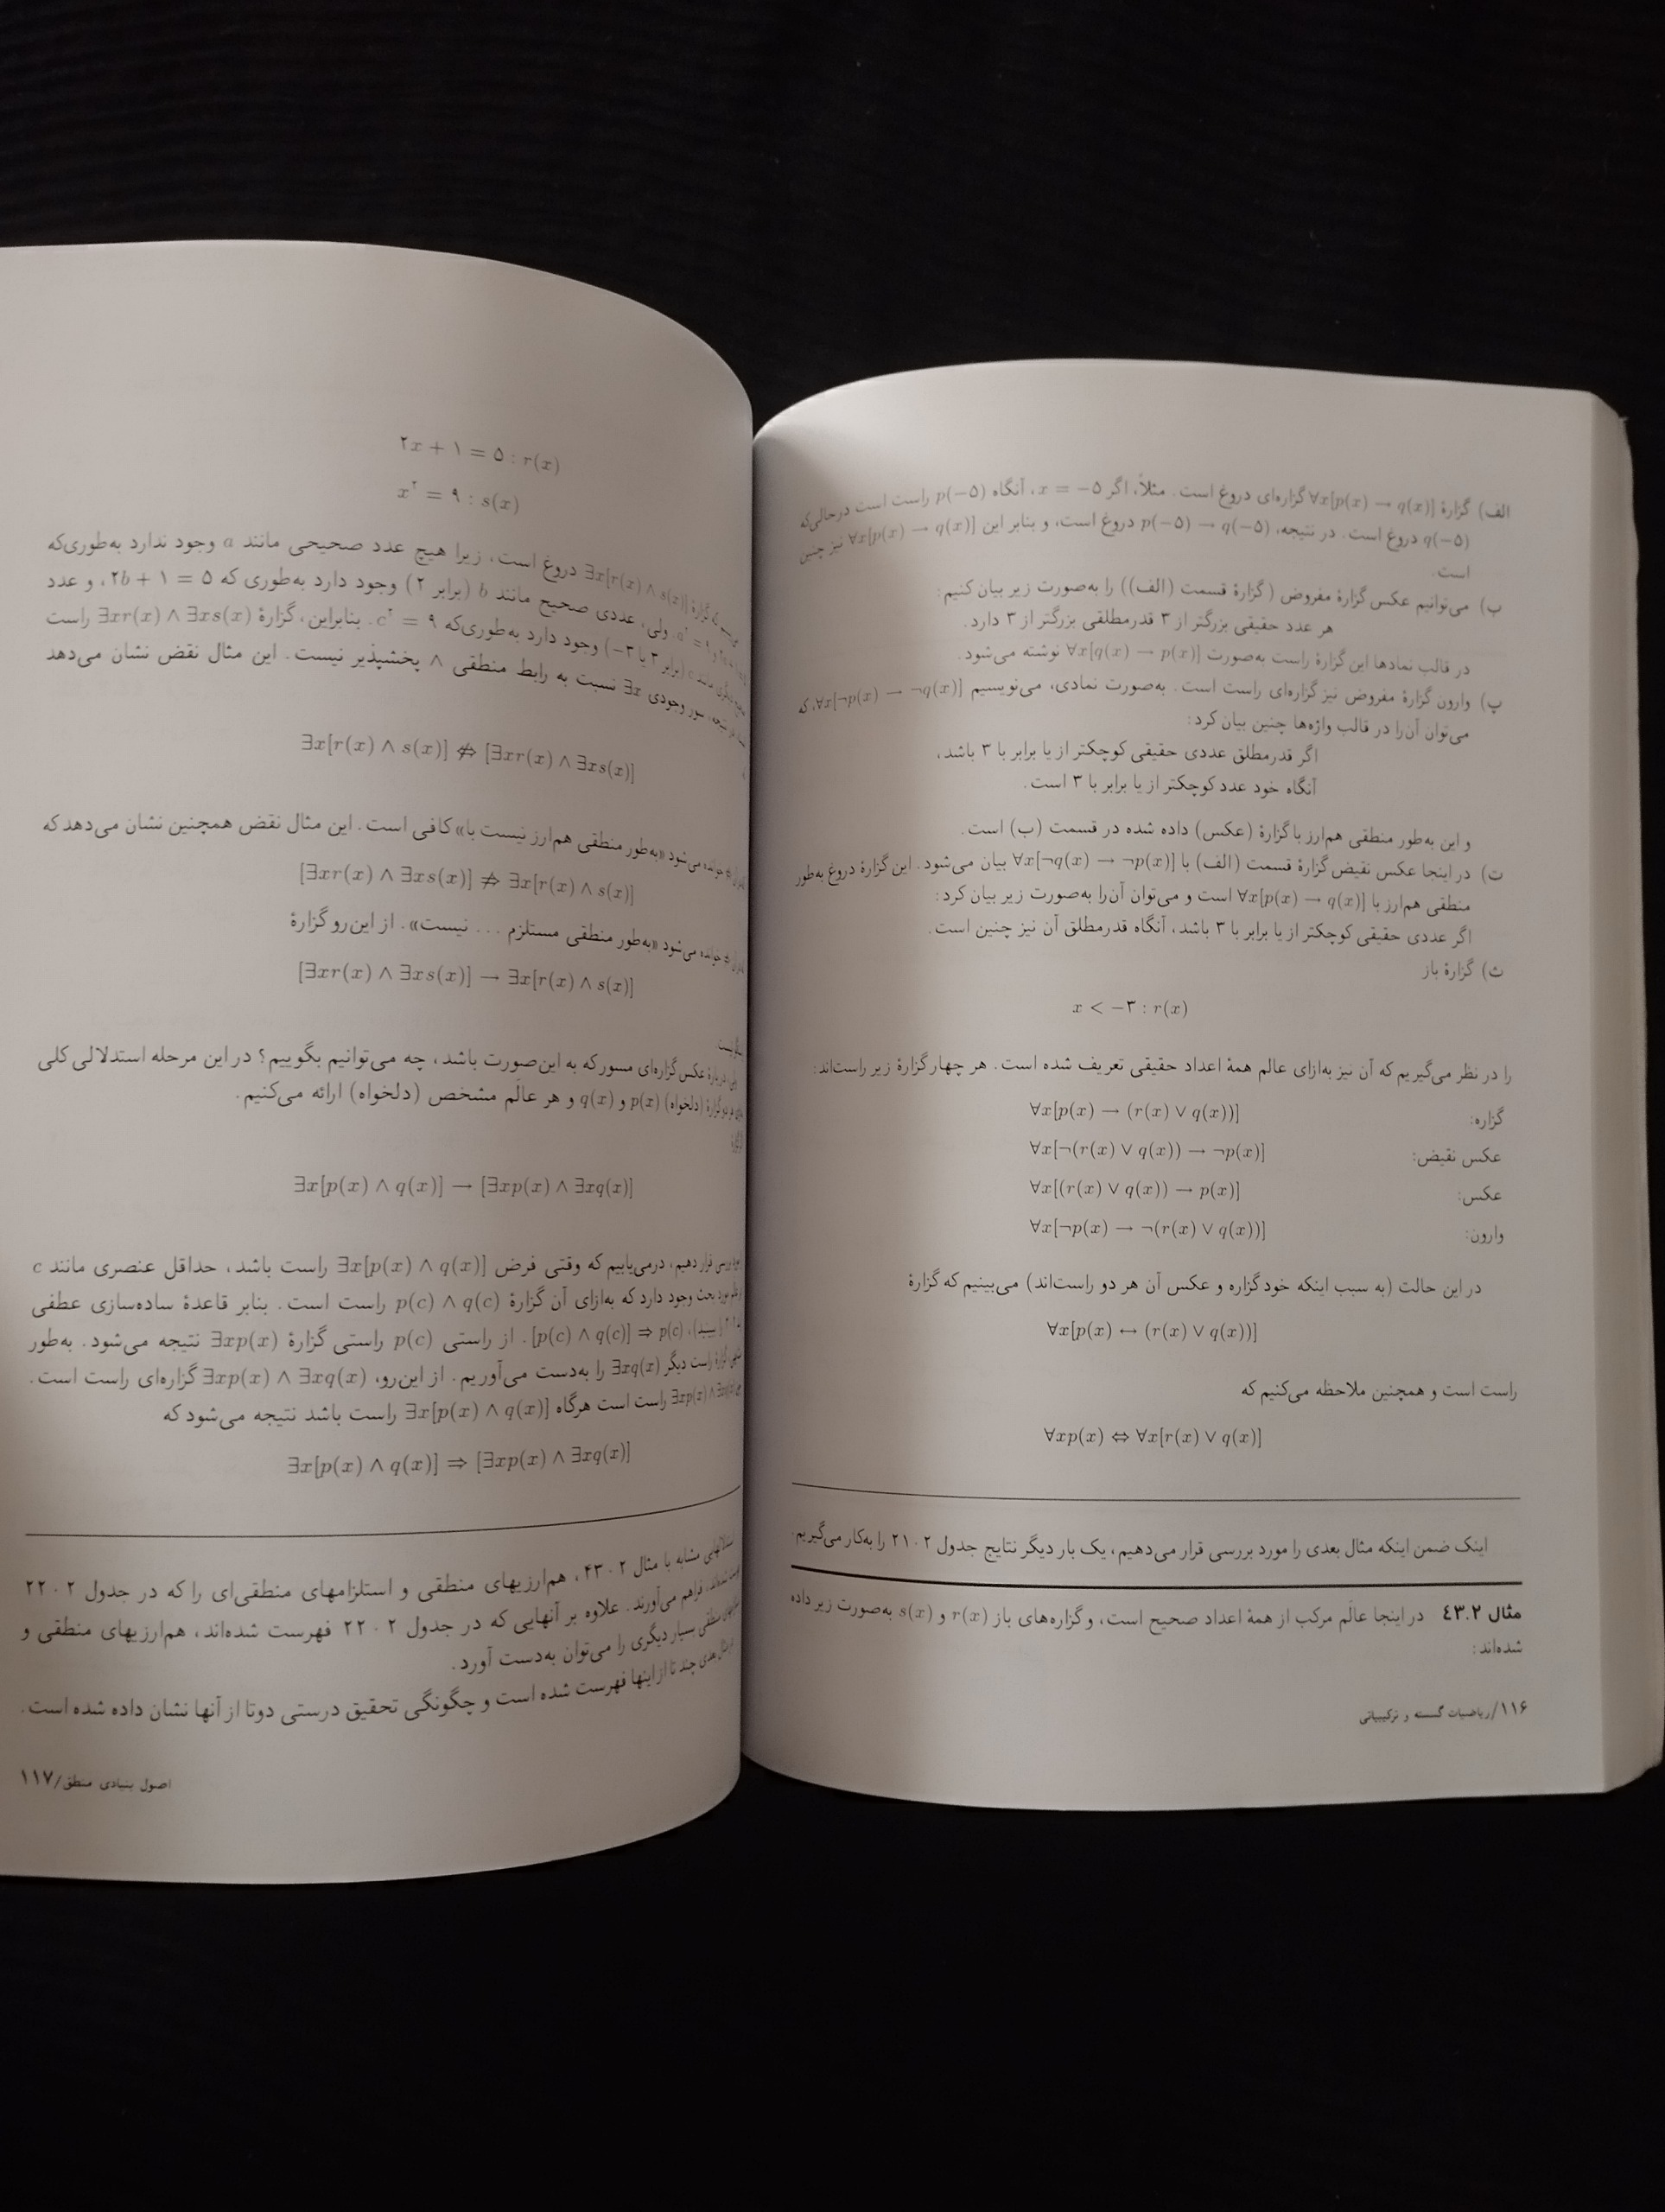 الف) گزارهٔ ∀x[p(x) → q(x)] گزاره‌ای دروغ است. مثلاً، اگر x = −۵، آنگاه p(−۵) راست است درحالی‌که
q(−۵) دروغ است. در نتیجه، p(−۵) → q(−۵) دروغ است، و بنابر این ∀x[p(x) → q(x)] نیز چنین
است.
ب) می‌توانیم عکس گزارهٔ مفروض (گزارهٔ قسمت (الف)) را به‌صورت زیر بیان کنیم:
هر عدد حقیقی بزرگتر از ۳ قدرمطلقی بزرگتر از ۳ دارد.
در قالب نمادها این گزارهٔ راست به‌صورت ∀x[q(x) → p(x)] نوشته می‌شود.
پ) وارون گزارهٔ مفروض نیز گزاره‌ای راست است. به‌صورت نمادی، می‌نویسیم ∀x[¬p(x) → ¬q(x)]، که
می‌توان آن‌را در قالب واژه‌ها چنین بیان کرد:
اگر قدرمطلق عددی حقیقی کوچکتر از یا برابر با ۳ باشد،
آنگاه خود عدد کوچکتر از یا برابر با ۳ است.
و این به‌طور منطقی هم‌ارز با گزارهٔ (عکس) داده شده در قسمت (ب) است.
ت) در اینجا عکس نقیض گزارهٔ قسمت (الف) با ∀x[¬q(x) → ¬p(x)] بیان می‌شود. این گزارهٔ دروغ به‌طور
منطقی هم‌ارز با ∀x[p(x) → q(x)] است و می‌توان آن‌را به‌صورت زیر بیان کرد:
اگر عددی حقیقی کوچکتر از یا برابر با ۳ باشد، آنگاه قدرمطلق آن نیز چنین است.
ث) گزارهٔ باز
x < −۳ : r(x)
را در نظر می‌گیریم که آن نیز به‌ازای عالم همهٔ اعداد حقیقی تعریف شده است. هر چهار گزارهٔ زیر راست‌اند:
گزاره: ∀x[p(x) → (r(x) ∨ q(x))]
عکس نقیض: ∀x[¬(r(x) ∨ q(x)) → ¬p(x)]
عکس: ∀x[(r(x) ∨ q(x)) → p(x)]
وارون: ∀x[¬p(x) → ¬(r(x) ∨ q(x))]
در این حالت (به سبب اینکه خود گزاره و عکس آن هر دو راست‌اند) می‌بینیم که گزارهٔ
∀x[p(x) ↔ (r(x) ∨ q(x))]
راست است و همچنین ملاحظه می‌کنیم که
∀xp(x) ⇔ ∀x[r(x) ∨ q(x)]
اینک ضمن اینکه مثال بعدی را مورد بررسی قرار می‌دهیم، یک بار دیگر نتایج جدول ۲۱.۲ را به‌کار می‌گیریم.
مثال ٤٣.٢ در اینجا عالَم مرکب از همهٔ اعداد صحیح است، و گزاره‌های باز r(x) و s(x) به‌صورت زیر داده
شده‌اند:
۱۱۶/ریاضیات گسسته و ترکیبیاتی
۲x + ۱ = ۵ : r(x)
x۲ = ۹ : s(x)
گزارهٔ ∃x[r(x) ∧ s(x)] دروغ است، زیرا هیچ عدد صحیحی مانند a وجود ندارد به‌طوری‌که
ولی، عددی صحیح مانند b (برابر ۲) وجود دارد به‌طوری که ۲b + ۱ = ۵، و عدد
مانند c (برابر ۳ یا ۳−) وجود دارد به‌طوری‌که c۲ = ۹. بنابراین، گزارهٔ ∃xr(x) ∧ ∃xs(x) راست
سور وجودی ∃x نسبت به رابط منطقی ∧ پخشپذیر نیست. این مثال نقض نشان می‌دهد
∃x[r(x) ∧ s(x)] ⇎ [∃xr(x) ∧ ∃xs(x)]
خوانده می‌شود «به‌طور منطقی هم‌ارز نیست با» کافی است. این مثال نقض همچنین نشان می‌دهد که
[∃xr(x) ∧ ∃xs(x)] ⇏ ∃x[r(x) ∧ s(x)]
خوانده می‌شود «به‌طور منطقی مستلزم ... نیست». از این‌رو گزارهٔ
[∃xr(x) ∧ ∃xs(x)] → ∃x[r(x) ∧ s(x)]
دربارهٔ عکس گزاره‌ای مسور که به این‌صورت باشد، چه می‌توانیم بگوییم؟ در این مرحله استدلالی کلی
گزارهٔ (دلخواه) p(x) و q(x) و هر عالَم مشخص (دلخواه) ارائه می‌کنیم.
∃x[p(x) ∧ q(x)] → [∃xp(x) ∧ ∃xq(x)]
قرار دهیم، درمی‌یابیم که وقتی فرض ∃x[p(x) ∧ q(x)] راست باشد، حداقل عنصری مانند c
مورد بحث وجود دارد که به‌ازای آن گزارهٔ p(c) ∧ q(c) راست است. بنابر قاعدهٔ ساده‌سازی عطفی
[p(c) ∧ q(c)] ⇒ p(c). از راستی p(c) راستی گزارهٔ ∃xp(x) نتیجه می‌شود. به‌طور
گزارهٔ راست دیگر ∃xq(x) را به‌دست می‌آوریم. از این‌رو، ∃xp(x) ∧ ∃xq(x) گزاره‌ای راست است.
∃xp(x) ∧ ∃xq(x) راست است هرگاه ∃x[p(x) ∧ q(x)] راست باشد نتیجه می‌شود که
∃x[p(x) ∧ q(x)] ⇒ [∃xp(x) ∧ ∃xq(x)]
استدلالهای مشابه با مثال ۴۳.۲، هم‌ارزیهای منطقی و استلزامهای منطقی‌ای را که در جدول ۲۲.۲
فراهم می‌آورند. علاوه بر آنهایی که در جدول ۲۲.۲ فهرست شده‌اند، هم‌ارزیهای منطقی و
منطقی بسیار دیگری را می‌توان به‌دست آورد.
چند تا از اینها فهرست شده است و چگونگی تحقیق درستی دوتا از آنها نشان داده شده است.
اصول بنیادی منطق/۱۱۷